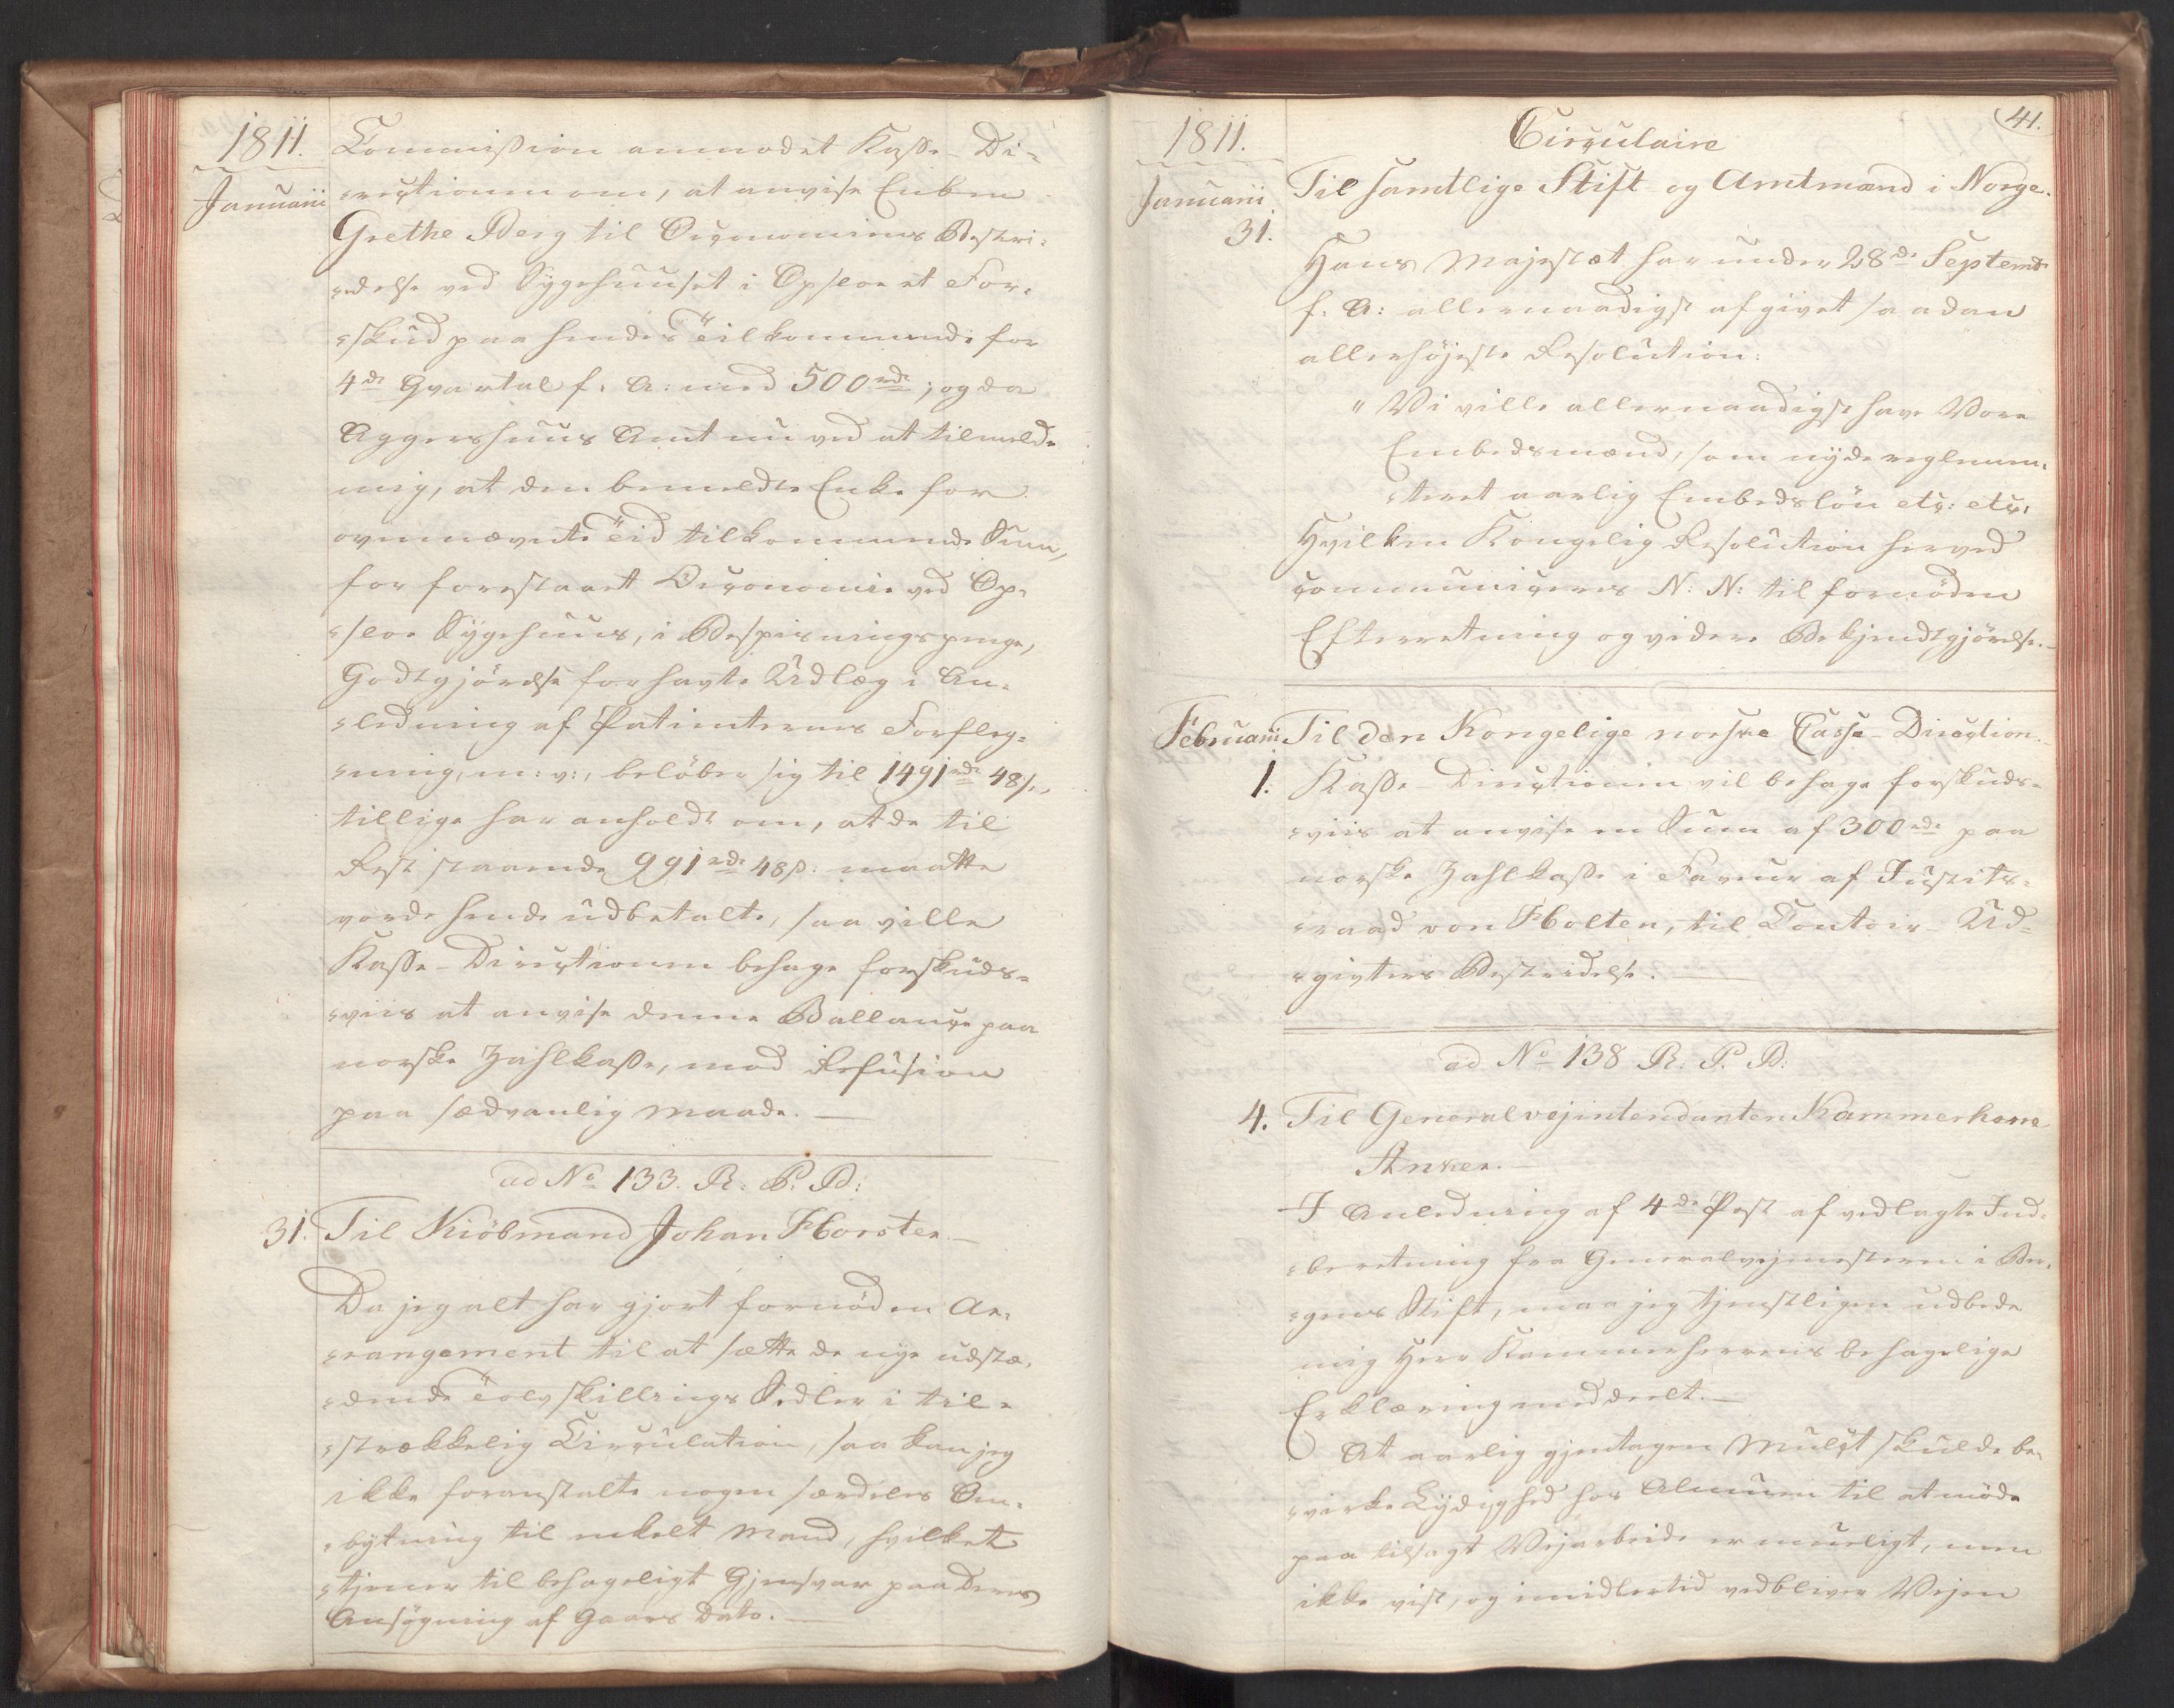 1811.
Januarii
Commission anmodet Kasse-Di-
rectionen om, at anvise Enken
Grethe Berg til Oeconomiens Bestri-
delse ved Sygehuuset i Opsloe et For-
skud paa hendes Tilkommende for
4de Qvartal f. A: med 500 rdr; og da
Aggershuus Amt nu ved at tilmelde
mig, at den bemeldte Enke for
ovennævnte Tid tilkommende Sum,
for forestaaet Oeconomie ved Op-
sloe Sygehuus, i Bespisningspenge,
Godtgjörelse for havte Udlæg i An-
ledning af Patienternes Forfleg-
ning, m: v:, belöber sig til 1491 rdr 48 s.,
tillige har anholdt om, at de til
Rest staaende 991 rdr 48 s: maatte
vorde hende udbetalte, saa ville
Kasse-Directionen behage forskuds-
viis at anvise denne Ballance paa
norske Zahlkasse, mod Refusion
paa sædvanlig Maade.
ad No 133. R. P. B:
31. Til Kiöbmand Johan Horster.
Da jeg alt har gjort fornöden Ar-
rangement til at sætte de nye udstæ-
dende Tolvskillings Sedler i til-
strækkelig Circulation, saa kan jeg
ikke foranstalte nogen særdeles Om-
bytning til enkelt Mand, hvilket
tjener til behageligt Gjensvar paa Deres
Ansögning af Gaars Dato.
41.
1811.
Januarii
31.
Circulaire
Til samtlige Stift- og Amtmænd i Norge.
Hans Majestæt har under 28de Septembr
f. A: allernaadigst afgivet saadan
allerhöjeste Resolution:
"Vi ville allernaadigst have Vore
Embedsmænd, som nyde reglemen-
teret aarlig Embedslön etc: etc:
Hvilken Kongelig Resolution herved
communiceres N: N: til fornöden
Efterretning og videre Bekjendtgjörelse.
Februarii Til den Kongelige norske Casse-Direction.
1. Kasse-Directionen vil behage forskuds-
viis at anvise en Sum af 300 rdr paa
norske Zahlkasse i Faveur af Justits-
raad von Holten, til Contoir-Ud-
givters Bestridelse.
ad No 138 R. P. B:
4. Til Generalvejintendanten Kammerherre
Anker.
I Anledning af 4de Post af vedlagte Ind-
beretning fra Generalvejmesteren i Ber-
gens Stift, maa jeg tjenstligen udbede
mig Herr Kammerherrens behagelige
Erklæring meddeelt.
At aarlig gjentagen Mulct skulde be-
virke Lydighed hos Almuen til at möde
paa tilsagt Vejarbeide er mueligt, men
ikke vist, og imidlertid vedbliver Vejen